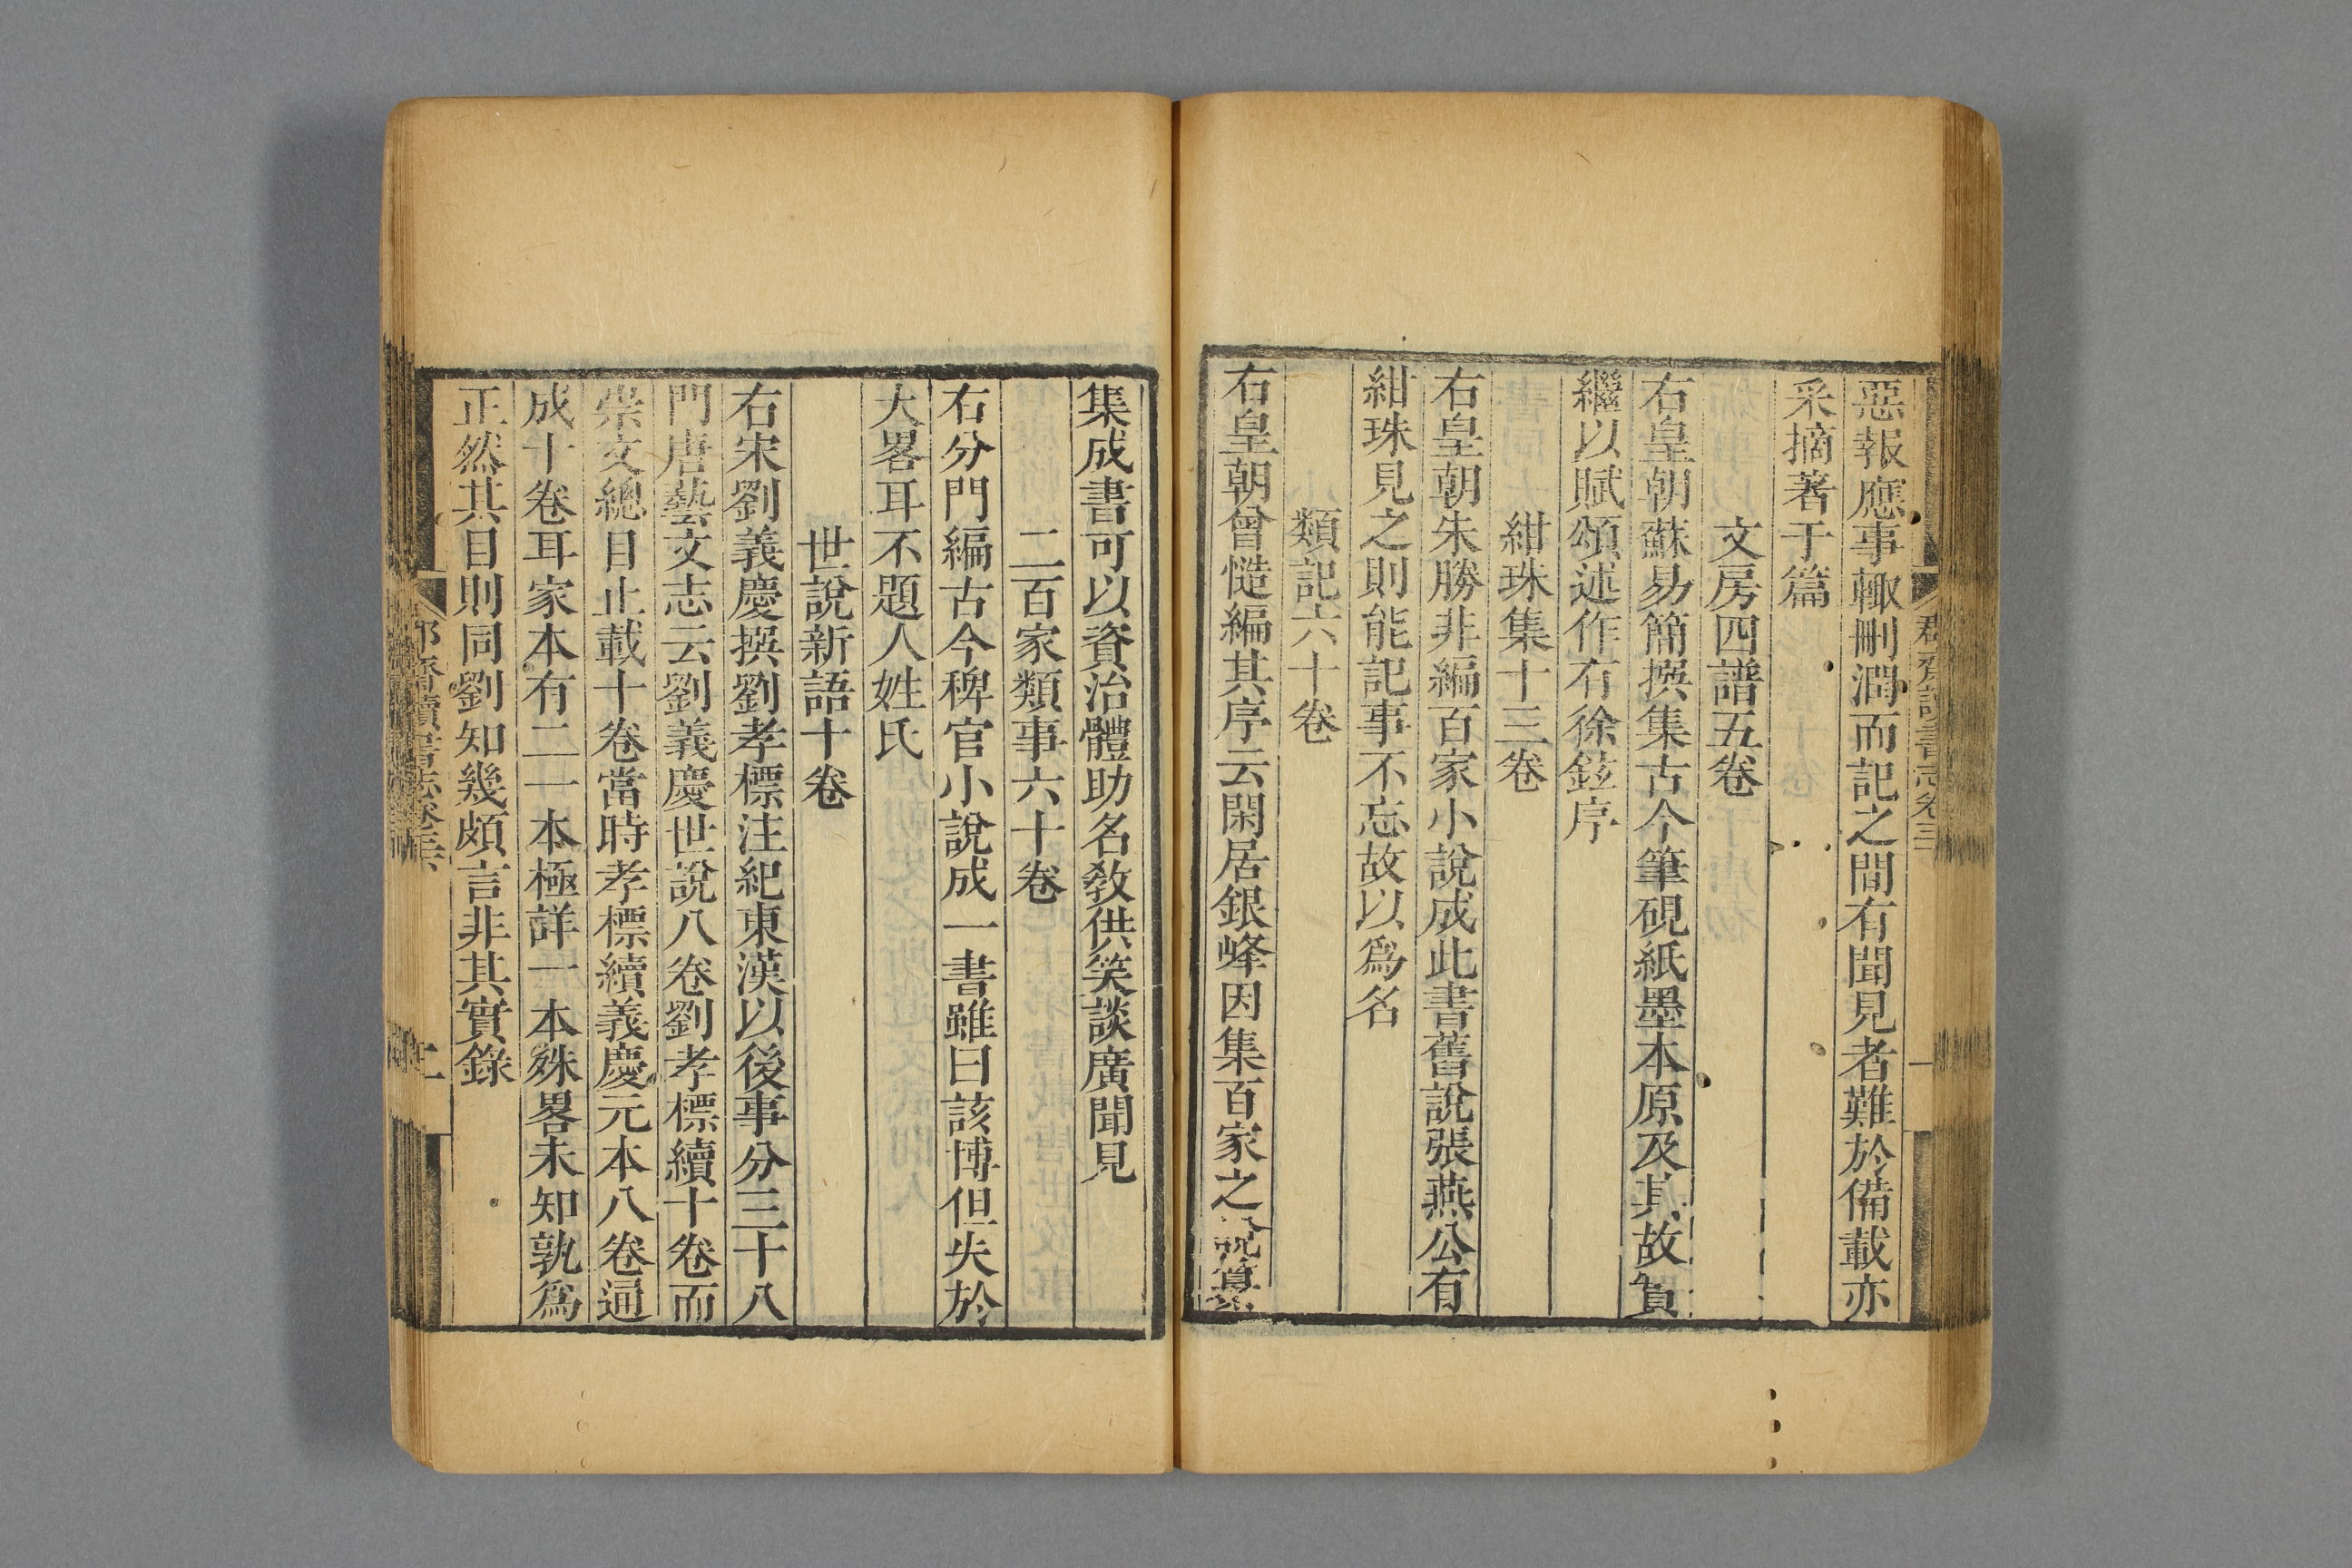 惡報應事輙刪潤而記之間有聞見者難於備載亦
采摘著于篇
文房四譜五卷
右皇朝蘇易簡撰集古今筆硯紙墨本原及其故實
繼以賦頌述作有徐鉉序
紺珠集十三卷
右皇朝朱勝非編百家小說成此書舊說張燕公有
紺珠見之則能記事不忘故以爲名
類記六十卷
右皇朝曾慥編其序云閑居銀峰因集百家之說纂
集成書可以資治體助名教供笑談廣聞見
二百家類事六十卷
右分門編古今稗官小說成一書雖曰該博但失於
大畧耳不題人姓氏
世說新語十卷
右宋劉義慶撰劉孝標注紀東漢以後事分三十八
門唐藝文志云劉義慶世說八卷劉孝標續十卷而
崇文總目止載十卷當時孝標續義慶元本八卷通
成十卷耳家本有二一本極詳一本殊畧未知孰爲
正然其目則同劉知幾頗言非其實錄